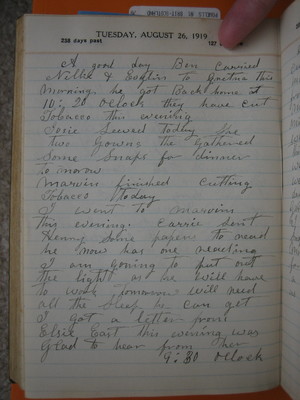 TUESDAY, AUGUST 26, 1919
238 days past
127
A good day Ben carried
Nellie & to Gretna this
Morning. he got Back home at
10:20 Oclock they have cut
Tobacco this evening
Josie Sewed today She
two Gowns She Gathered
Some Snaps for dinner
to morow
Marvin finished Cutting
Tobacco today
I went to Marvin
this evening. Carrie Sent
Henry Some papers to read
he now has one reading
I am going to put out
the light as he will have
to work Tomorrow will need
all the Sleep he can get
I got a letter from
Elsie East this evening was
Glad to hear from her
9:30 Oclock